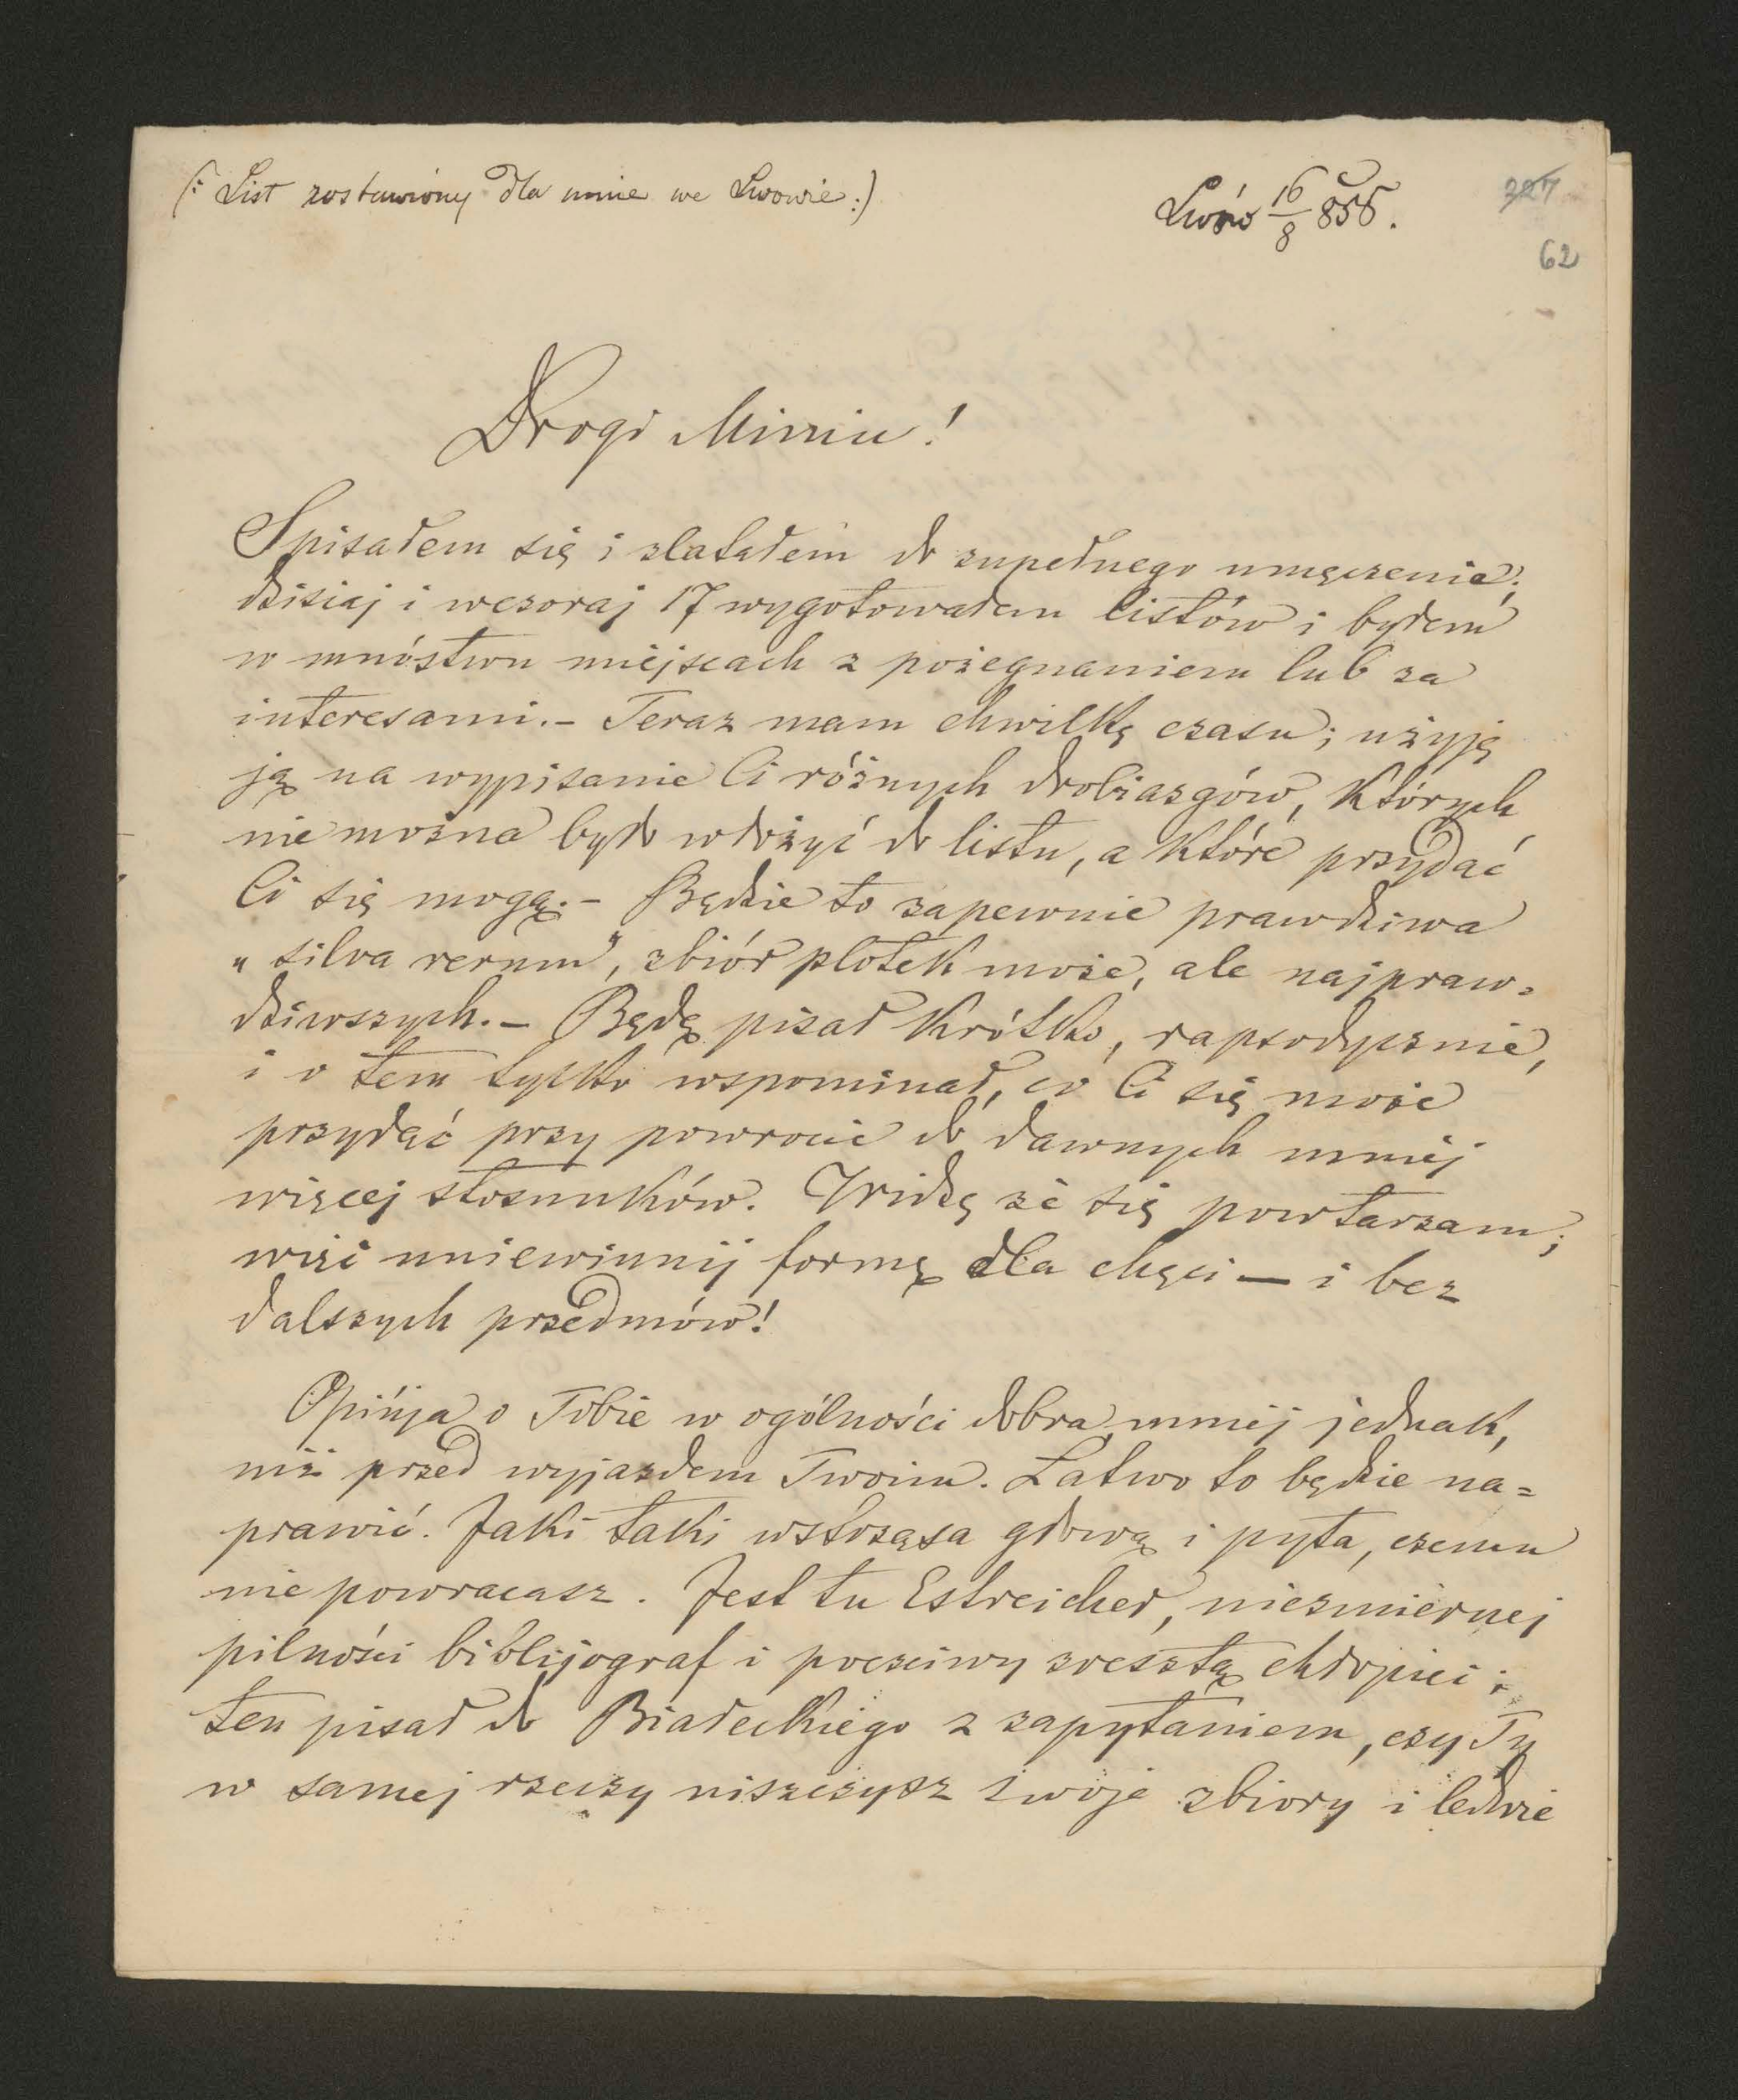 (: List zostawiony dla mnie we Lwowie :)
Lwów 16/8 855.
327
62
Drogi Misiu!
Spisałem się i zlatałem do zupełnego umęczenia;
dzisiaj i wczoraj 17 wygotowałem listów i byłem
w mnóstwu miejscach z pożegnaniem lub za
interesami. – Teraz mam chwilkę czasu; użyję
ją na wypisanie Ci różnych drobiazgów, których
nie można było włożyć do listu, a które przydać
Ci się mogą. – Będzie to zapewnie prawdziwa
„silva rerum”, zbiór plotek może, ale najpraw=
dziwszych. – Będę pisał krótko, rapsodycznie,
i o tem tylko wspominał, co Ci się może
przydać przy powrocie do dawnych mniej
więcej stosunków. Widzę że się powtarzam;
więc uniewinnij formę dla chęci — i bez
dalszych przedmów!
Opinija o Tobie w ogólności dobra, mniej jednak,
niż przed wyjazdem Twoim. Łatwo to będzie na=
prawić. Jaki taki wstrząsa głową i pyta, czemu
nie powracasz. Jest tu Estreicher, niezmiernej
pilności biblijograf i poczciwy zresztą chłopiec;
ten pisał do Białeckiego z zapytaniem, czy Ty
w samej rzeczy niszczysz swoje zbiory i ledwie